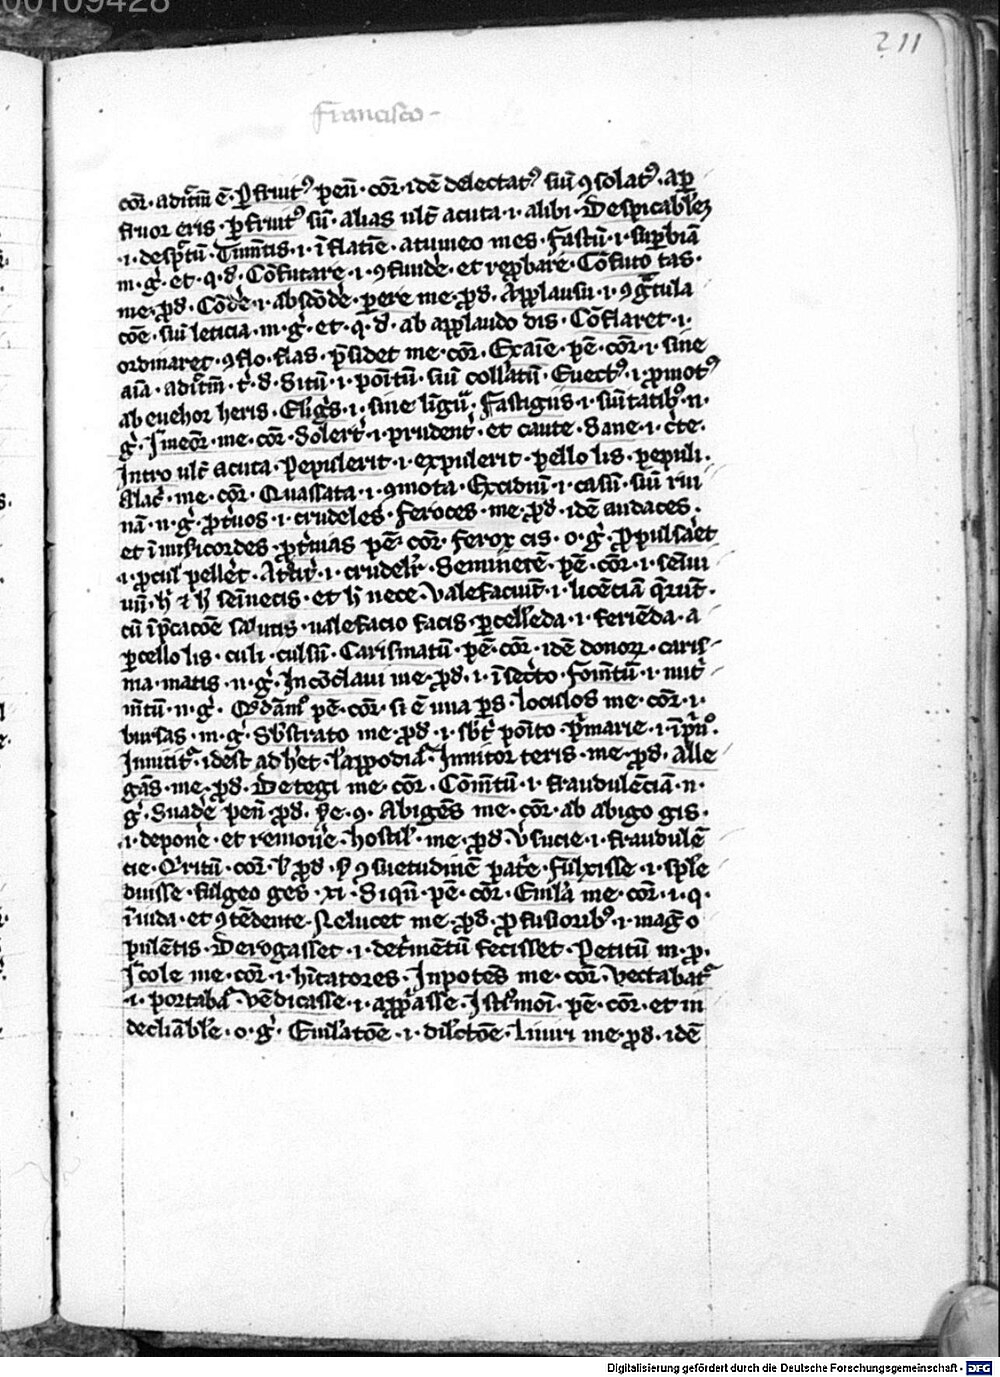 00109428
211
Francisco
cōr · aditm̄ ē · ꝑfruitꝰ · pen̄ · cōr · idē delectatꝰ siū ꝯsolatꝰ · aꝑ
fruor eris · ꝑfruitꝰ sū · alias ult̄ acuta · i · alibi · Despicabilē
· i · despctū · Tum̄tis · i · īflatiē · a tumeo mes · Fastū · i · suꝑbiā
m · g̉ · et · q · d̉ · Cōfutare · i · ꝯfundē · et reꝓbare · Cōfuto tas ·
me · ꝓd · Cōdē · i · abscōdē · ꝑere me · ꝓd · Applausu · i · ꝯgᷓtula
cōe · siū leticia · m · g̉ · et · q · d̉ · ab applaudo dis · Cōflaret · i ·
ordinaret · ꝯflo · flas · p̄sidet me · cōr · Exaīe · pē · cōr · i · sine
aīa · aditm̄ · t̉ · d̉ · Sitū · i · poītū · siū collatū · Euectꝰ · i · ꝓmotꝰ
ab euehor heris · Eligs · i · sine ligū · Fastigiis · i · sūitatibꝰ · n ·
g̉ · Imeōr · me · cōr · Solert̉ · i · prudent̉ · et caute · Sane · i · c̉te ·
Intro ult̄ acuta · Pepulerit · i · expulerit · pello lis · pepuli ·
Alac̉ · me · cōr · Quassata · i · ꝯmota · Excidiū · i · casū · siū rui
nā · n · g̉ · ꝓt̉uos · i · crudeles · Feroces · me · ꝓd · idē audaces ·
et īmisicordes · ꝓt̉uias pē · cōr · Ferox cis · o · g̉ · Ꝓpulsaret
· i · ꝓcul pellet · At̉cit̉ · i · crudelr̄ · Seminecē · pē · cōr · i · semiui
uū · h̄ ⁊ h̄ seīnecis · et h̄ nece · Valefaciūt · i · licēciā q̄rūt ·
cū īp̄cacōe salutis · ualefacio facis · ꝑcellēda · i · ferienda · a
ꝑcello lis · culi · culsū · Carismatū · pē · cōr · idē donoꝝ · caris
ma · matis · n · g̉ · In cōclaui me · ꝓd · i · ī sec̉to · Foīntū · i · nut̉
ēntū · n · g̉ · pē · cōr · si ē una ꝑs · loculos me · cōr · i ·
bursas · m · g̉ · Sb̄strato me · ꝓd · i · sbt̉ poīto · p̉marie · i · īpᷓnꝰ ·
Innitit̉ · idest adhet · l̄ appodiat̉ · Innitor teris · me · ꝓd · Alle
gās · me · ꝓd · Detegi me · cōr · Cōmtū · i · fraudulēciā · n ·
g̉ · Suadē pen̄ ꝓd · · ꝯ · Abigēs me · cōr · ab abigo gis ·
· i · deponē · et remouē · hostil̄ · me · ꝓd · v̉sucie · i · fraudulē
cie · Q̄ritū · cōr · l̄ ꝓd · ꝯsuetudinē pat̉e · Fulxisse · i · splē
duisse · fulgeo ges · xi · Siqn̄ · pē · cōr · Emla me · cōr · i · q ·
īuida · et ꝯtēdente · Relucet me · ꝓd · ꝓfusioribꝰ · i · mag̉ o
pulētis · Derogasset · i · det̉mentū fecisset · Petitū m · p ·
Icole me · cōr · i · hītatores · Inpotēs me · cōr · Vectabat̉
· i · portabat̉ · Vēdicasse · i · apꝓpᷓasse · Istꝰ moi · pē · cōr · et in
decliable · o · g̉ · Emlatōe · i · dilctōe · Liuui me · ꝓd · idē
Digitalisierung gefördert durch die Deutsche Forschungsgemeinschaft · DFG